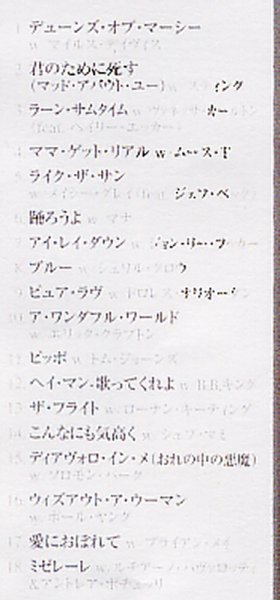 1. デューンズ・オブ・マーシー
w. マイルス・デイヴィス
2. 君のために死す
(マッド・アバウト・ユー) w. スティング
3. ラーン・サムタイム w. ヴァネッサ・カールトン
(feat. ヘイリー・エッカー)
4. ママ・ゲット・リアル w. ムース・T
5. ライク・ザ・サン
w. メイシー・グレイ (feat. ジェフ・ベック)
6. 踊ろうよ w. マナ
7. アイ・レイ・ダウン w. ジョン・リー・フッカー
8. ブルー w. シェリル・クロウ
9. ピュア・ラヴ w. ドロレス・オリオーダン
10. ア・ワンダフル・ワールド
w. エリック・クラプトン
11. ピッポ w. トム・ジョーンズ
12. ヘイ・マン-歌ってくれよ w. B.B.キング
13. ザ・フライト w. ローナン・キーティング
14. こんなにも気高く w. シェブ・マミ
15. ディアヴォロ・イン・メ(おれの中の悪魔)
w. ソロモン・バーク
16. ウィズアウト・ア・ウーマン
w. ポール・ヤング
17. 愛におぼれて w. ブライアン・メイ
18. ミゼレーレ w. ルチアーノ・パヴァロッティ
&アンドレア・ボチェッリ